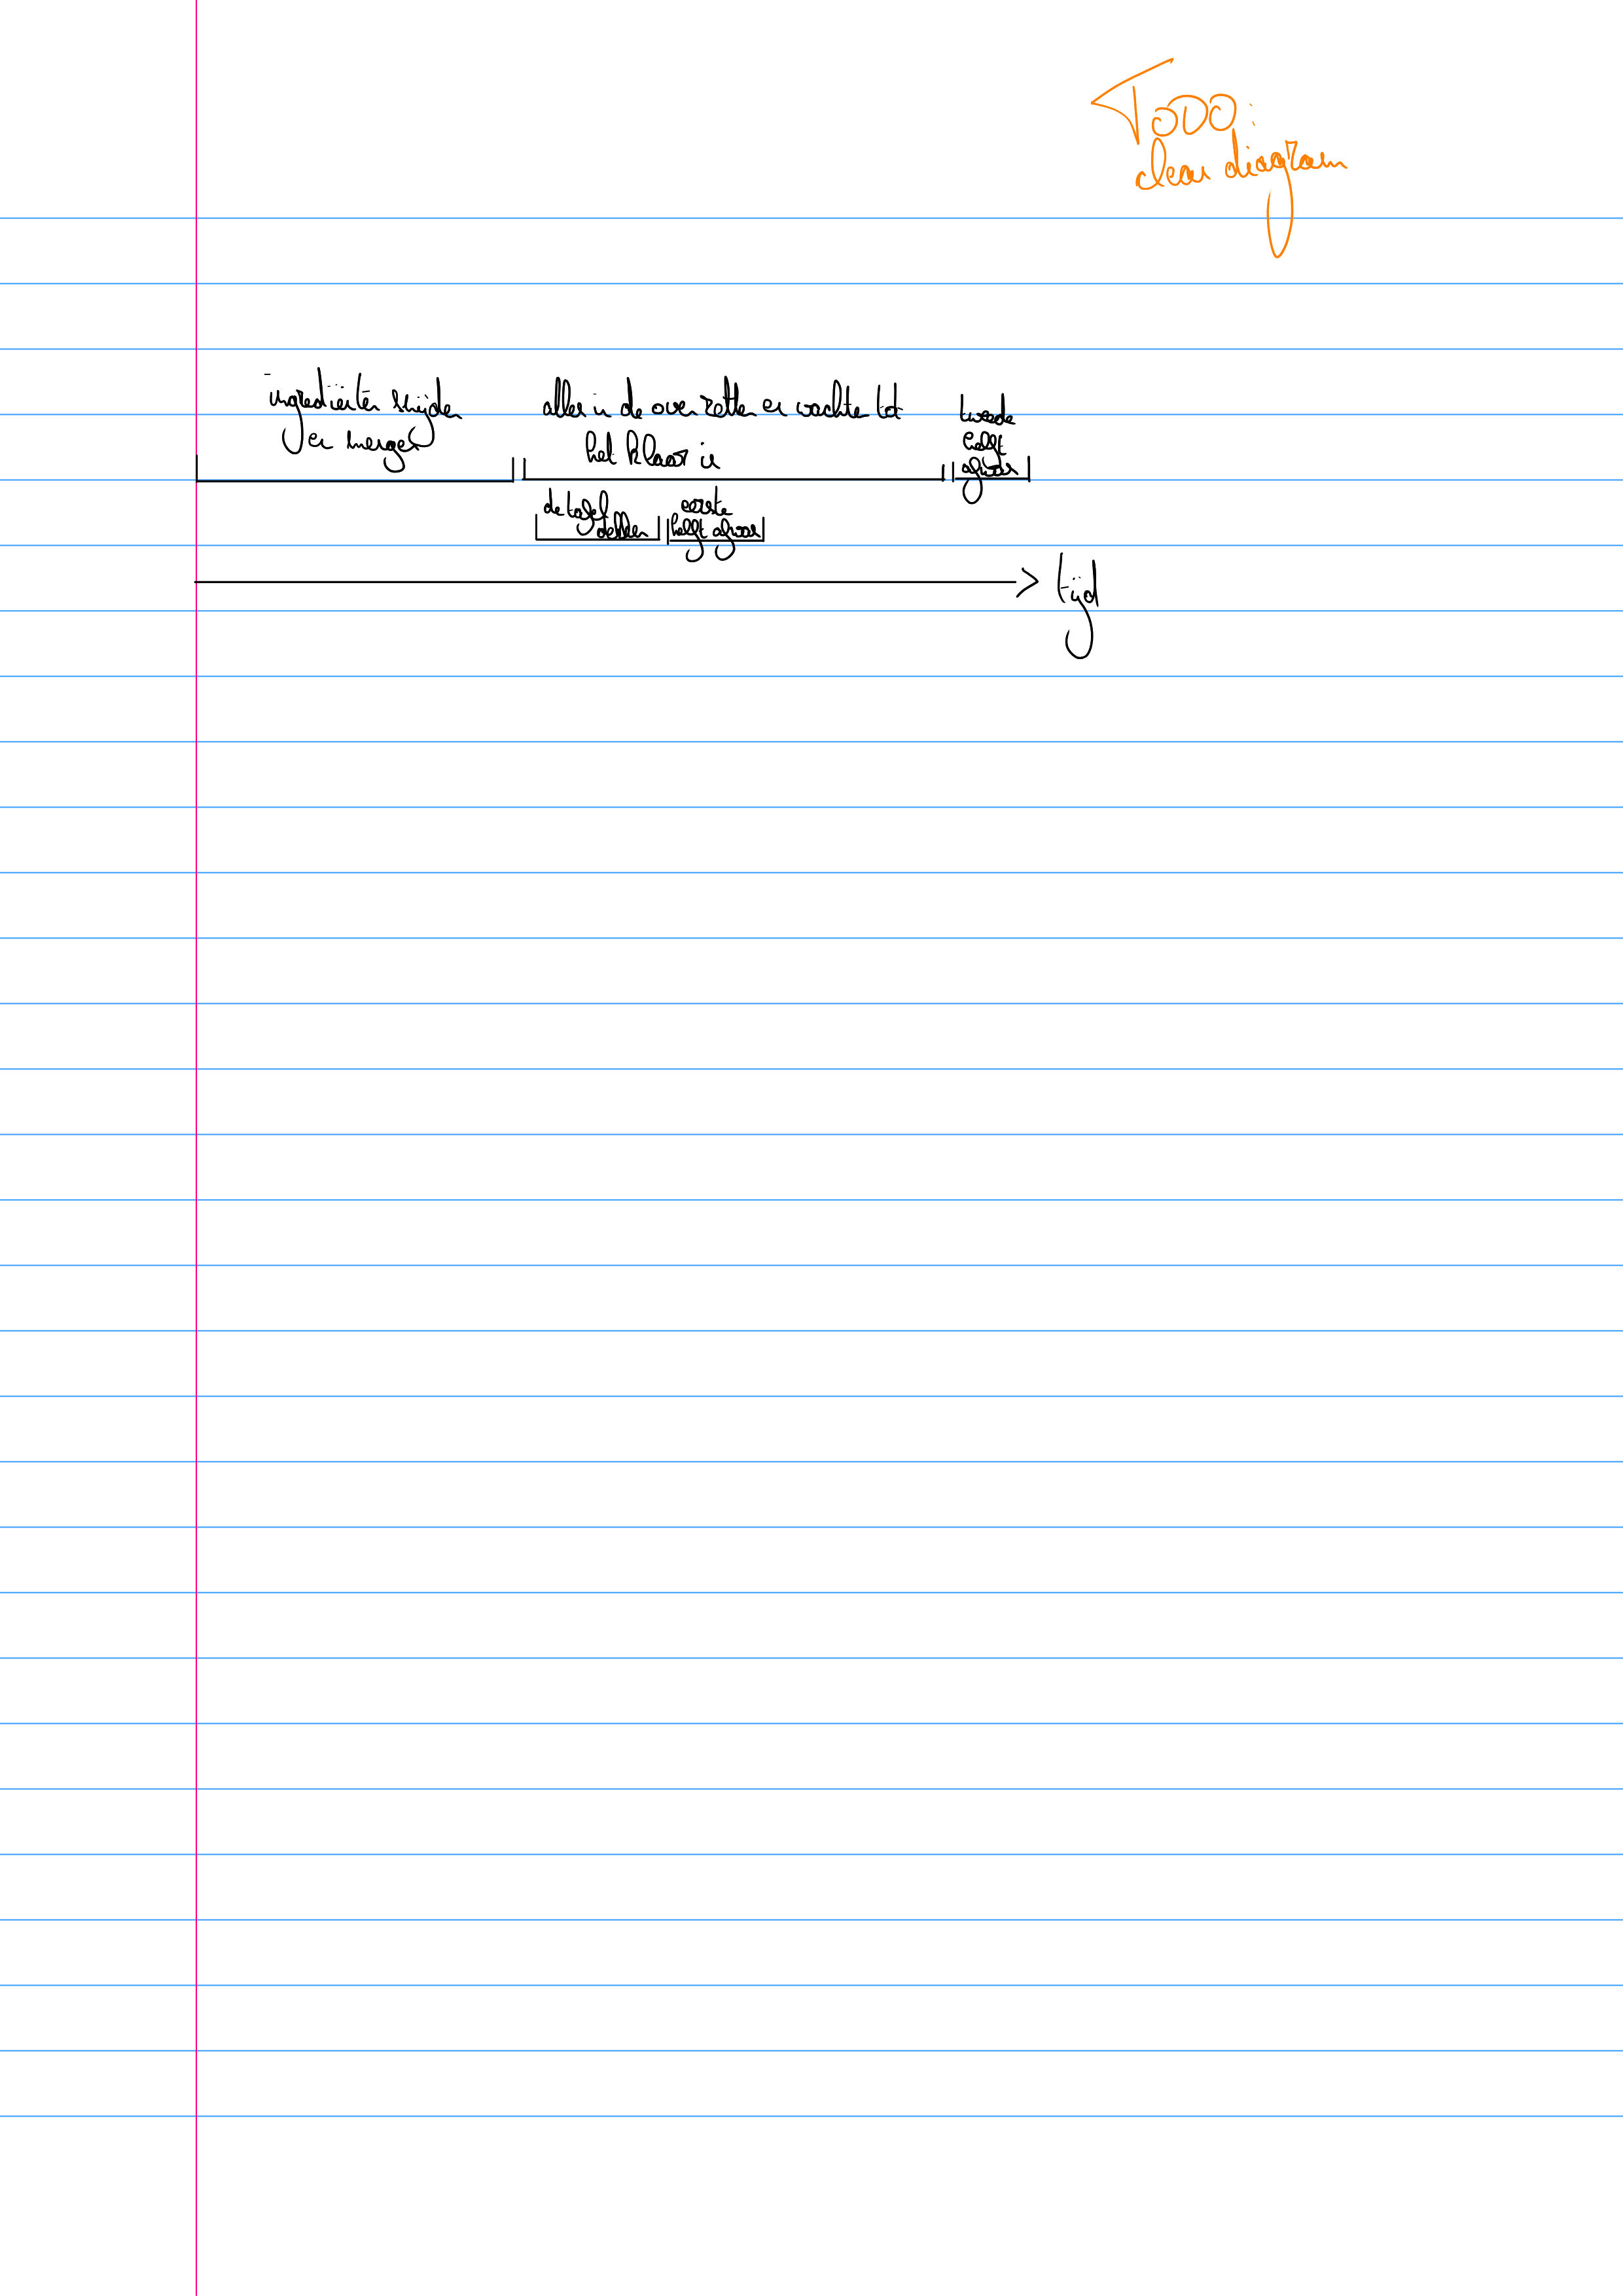 TODO:
clean diagram
ingrediënten snijden
en mengen
alles in de oven zetten en wachten tot
het klaar is
tweede
helft
afwas
de tafel
dekken
eerste
helft afwas
tijd